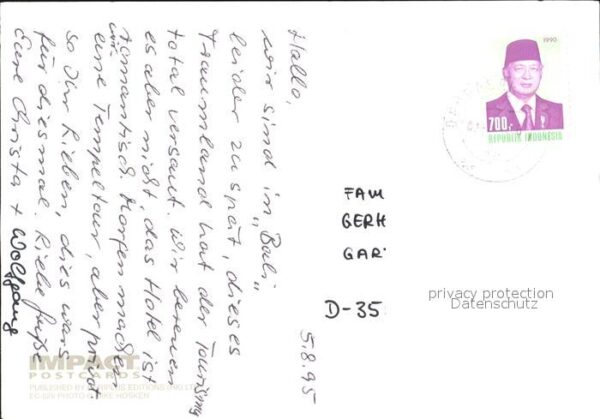 Hallo,
wir sind in „Bali„
leider zu spät, dieses
Traumland hat der Tourismus
total versaut. Wir bereuen
es aber nicht, das Hotel ist
romantisch. Morgen machen
wir
eine Tempeltour, aber privat
so Ihr Lieben, dies wars
für diesmal. Liebe Grüße
Eure Christa + Wolfgang
5.8.95
1990
700,-
REPUBLIK INDONESIA
FAM
GERH
GAR
D-35
privacy protection
Datenschutz
IMPACT
POSTCARDS